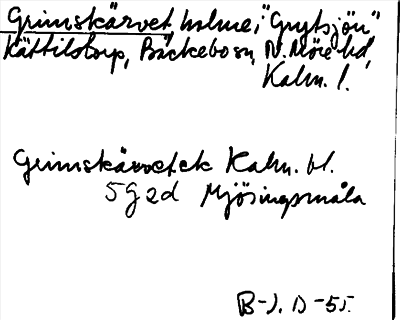 Grimskärvet, holme, i "Grytsjön"
Kättilstorp, Bäckebo sn, N. Möre hd,
Kalm. l.
Grimskärvet ek Kalm. bl.
5 G 2 d Mjösingsmåla
B-J. D -55.